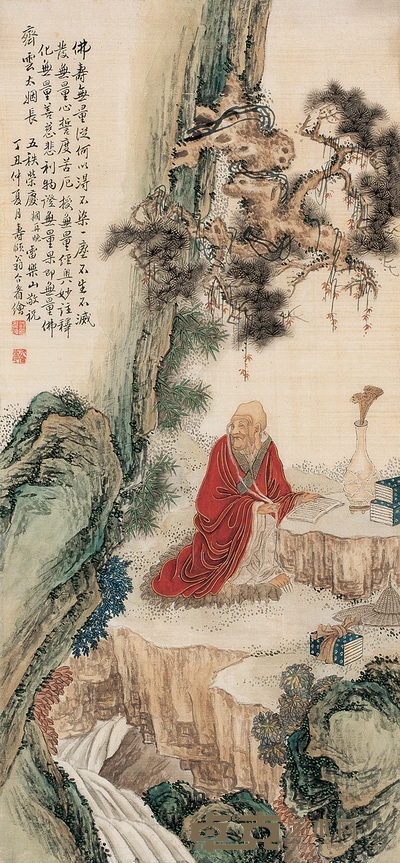 佛壽無量從何以得不染一塵不生不滅
發無量心誓度苦厄披無量經奧妙註釋
化無量善慈悲利物證無量果即無量佛
齊雲大姻長 五秩榮慶 姻再晚雷樂山敬祝
丁丑仲夏月 壽頤翁合著繪